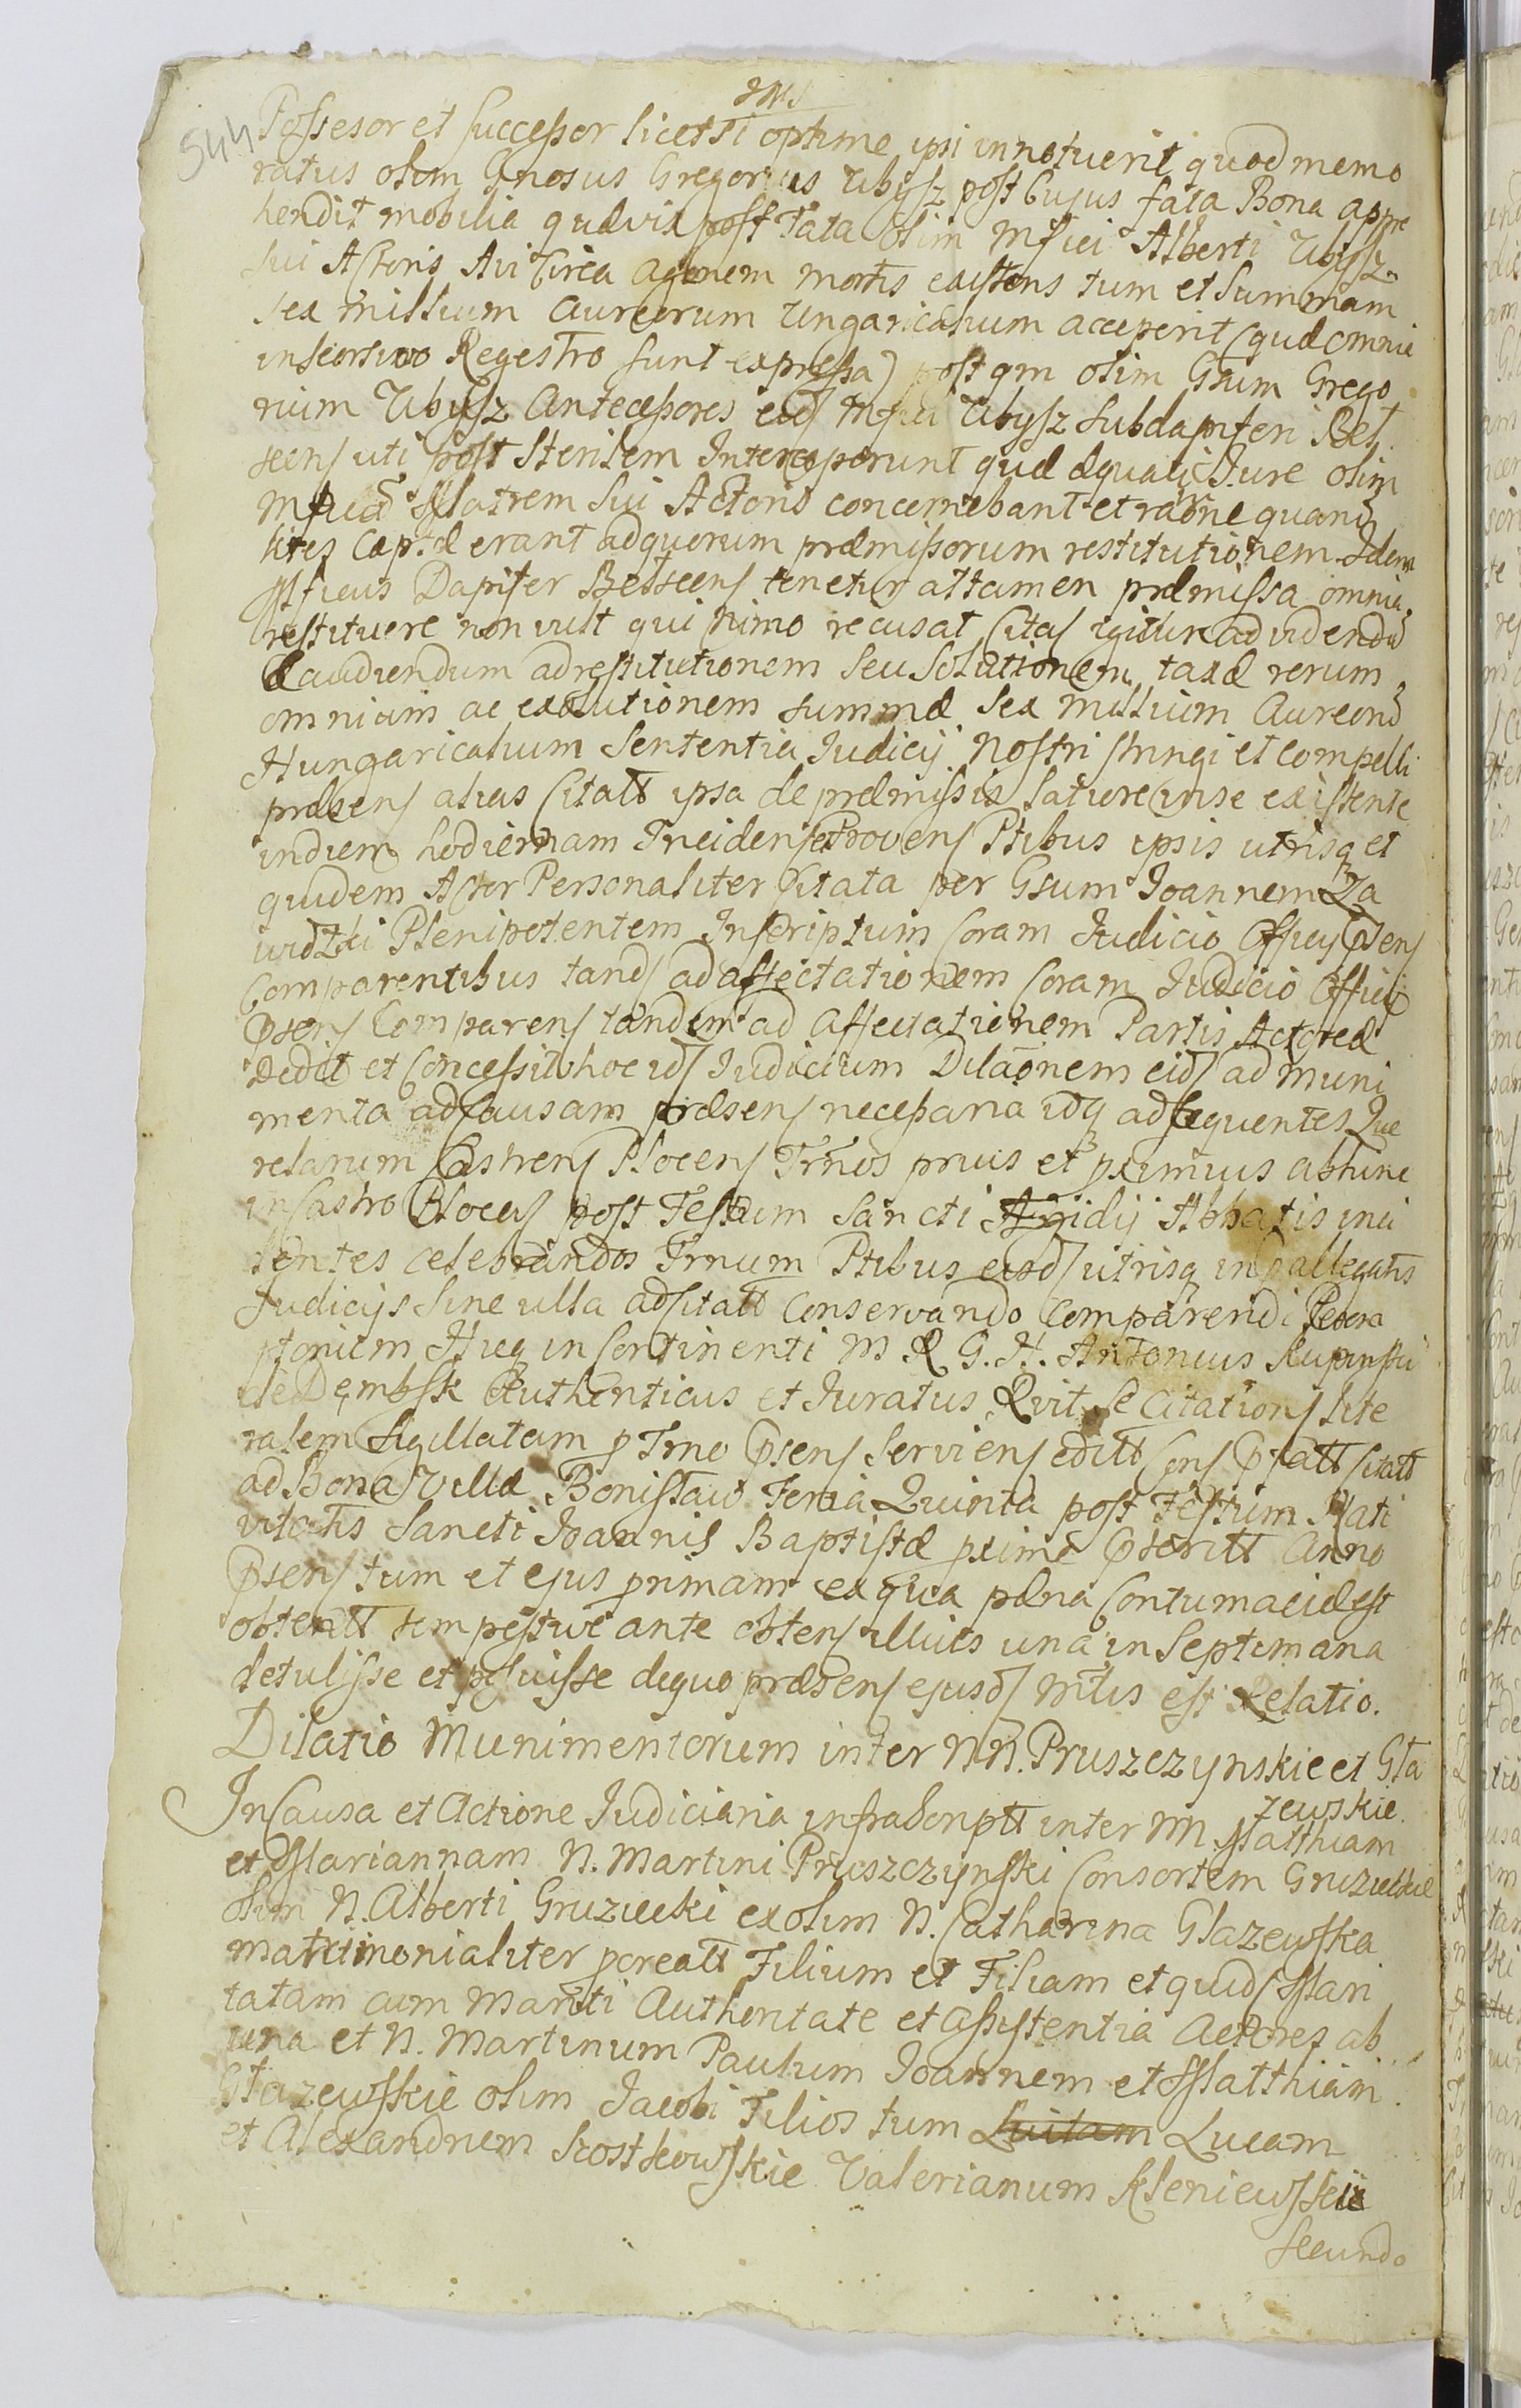 544
Possesor et Successor licet Si optime ipsi innotuerit quod memo
ratus olim Gnosus Gregorius Ubysz post Cujus fata Bona appre
hendit mobilia quævis post Fata olim Mfici Alberti Ubysz
sui Actoris Avi Circa agonem mortis existens tum et Summam
sex millium Aureorum Ungaricalium acceperit (quæ omnia
inseorsivo Regestro sunt expressa) post qm olim Gsum Grego
rium Ubysz Antecessores ejus Mfici Ubysz Subdapiferi Bel
scens uti post Sterilem Interceperunt quæ æquali Jure olim
Mficã Matrem sui Actoris concernebant et raõne quarũ
lites Captæ erant adquorum præmissorum restitutionem Idem
Mficus Dapifer Belscens tenetur attamen præmissa omnia
restituere non vult qui nimo recusat Citas igitur ad videndũ
& audiendum ad restitutionem seu Solutionem taxæ rerum
omnium ac exolutionem summæ Sex millium Aureorũ
Hungaricalium Sententia Judicij Nostri stringi et compelli
præsens alias Citatt ipsa de præmissis latiore in se existente
indiem hodiernam Incidens et Provens Ptibus ipsis utrisq et
quidem Actor Personaliter Citata per Gsum Joannem Za
widzki Plenipotentem Inscriptum Coram Judicio Officij Psens
Comparentibus tand ad affectationem Coram Judicio Officij
Psens Comparens tandem ad Affectationem Partis Actoreæ
Dedit et Concessit hoc id Judicium Dilaõnem eid ad muni
menta ad Causam præsens necessaria idq ad sequentes Que
relarum Castrens Plocens Trnos prius et pximius abhinc
in Castro Plocens post Festum Sancti Ægidij Abbatis inci
dentes celebrandos Trnum Ptibus eisd utrisq in pallegatis
Judicijs Sine ulla adcitatt Conservando Comparendi Perem
ptorium Hicq in Continenti M R G. H. Antonius Rupinski
de Dembsk Authenticus et Juratus Rvit Se Citations lite
ralem Sigillatam p Trno Psens Serviens editt Cons Pratt Citatt
ad Bona Villæ Bonislaw Feria Quinta post Festum Nati
vitatis Sancti Joannis Baptistæ pxime Pteritt Anno
Psens tum et ejus primam ex qua pæna Contumaciæ est
obtentt tempestive ante obtens illius una in Septimana
detulisse et posuisse dequo præsens ejusd Mtlis est Relatio.
Dilatio Munimentorum inter NN. Pruszczynskie et Gła
żewskie
In Causa et Actione Judiciaria infrascriptt inter M. Matthiam
et Mariannam N. Martini Pruszczynski Consortem Gruzieckie
olim N. Alberti Gruziecki ex olim N. Catharina Głazewska
matrimonialiter pcreatt Filium et Filiam et quid Mari
tatam cum Mariti Authoritate et assistentia Actores ab
una et N. Martinum Paulum Joannem et Matthiam
Głazewskie olim Jacobi Filios tum Lucam
et Alexandrem Kostkowskie Valerianum Kleniewskie
secundo